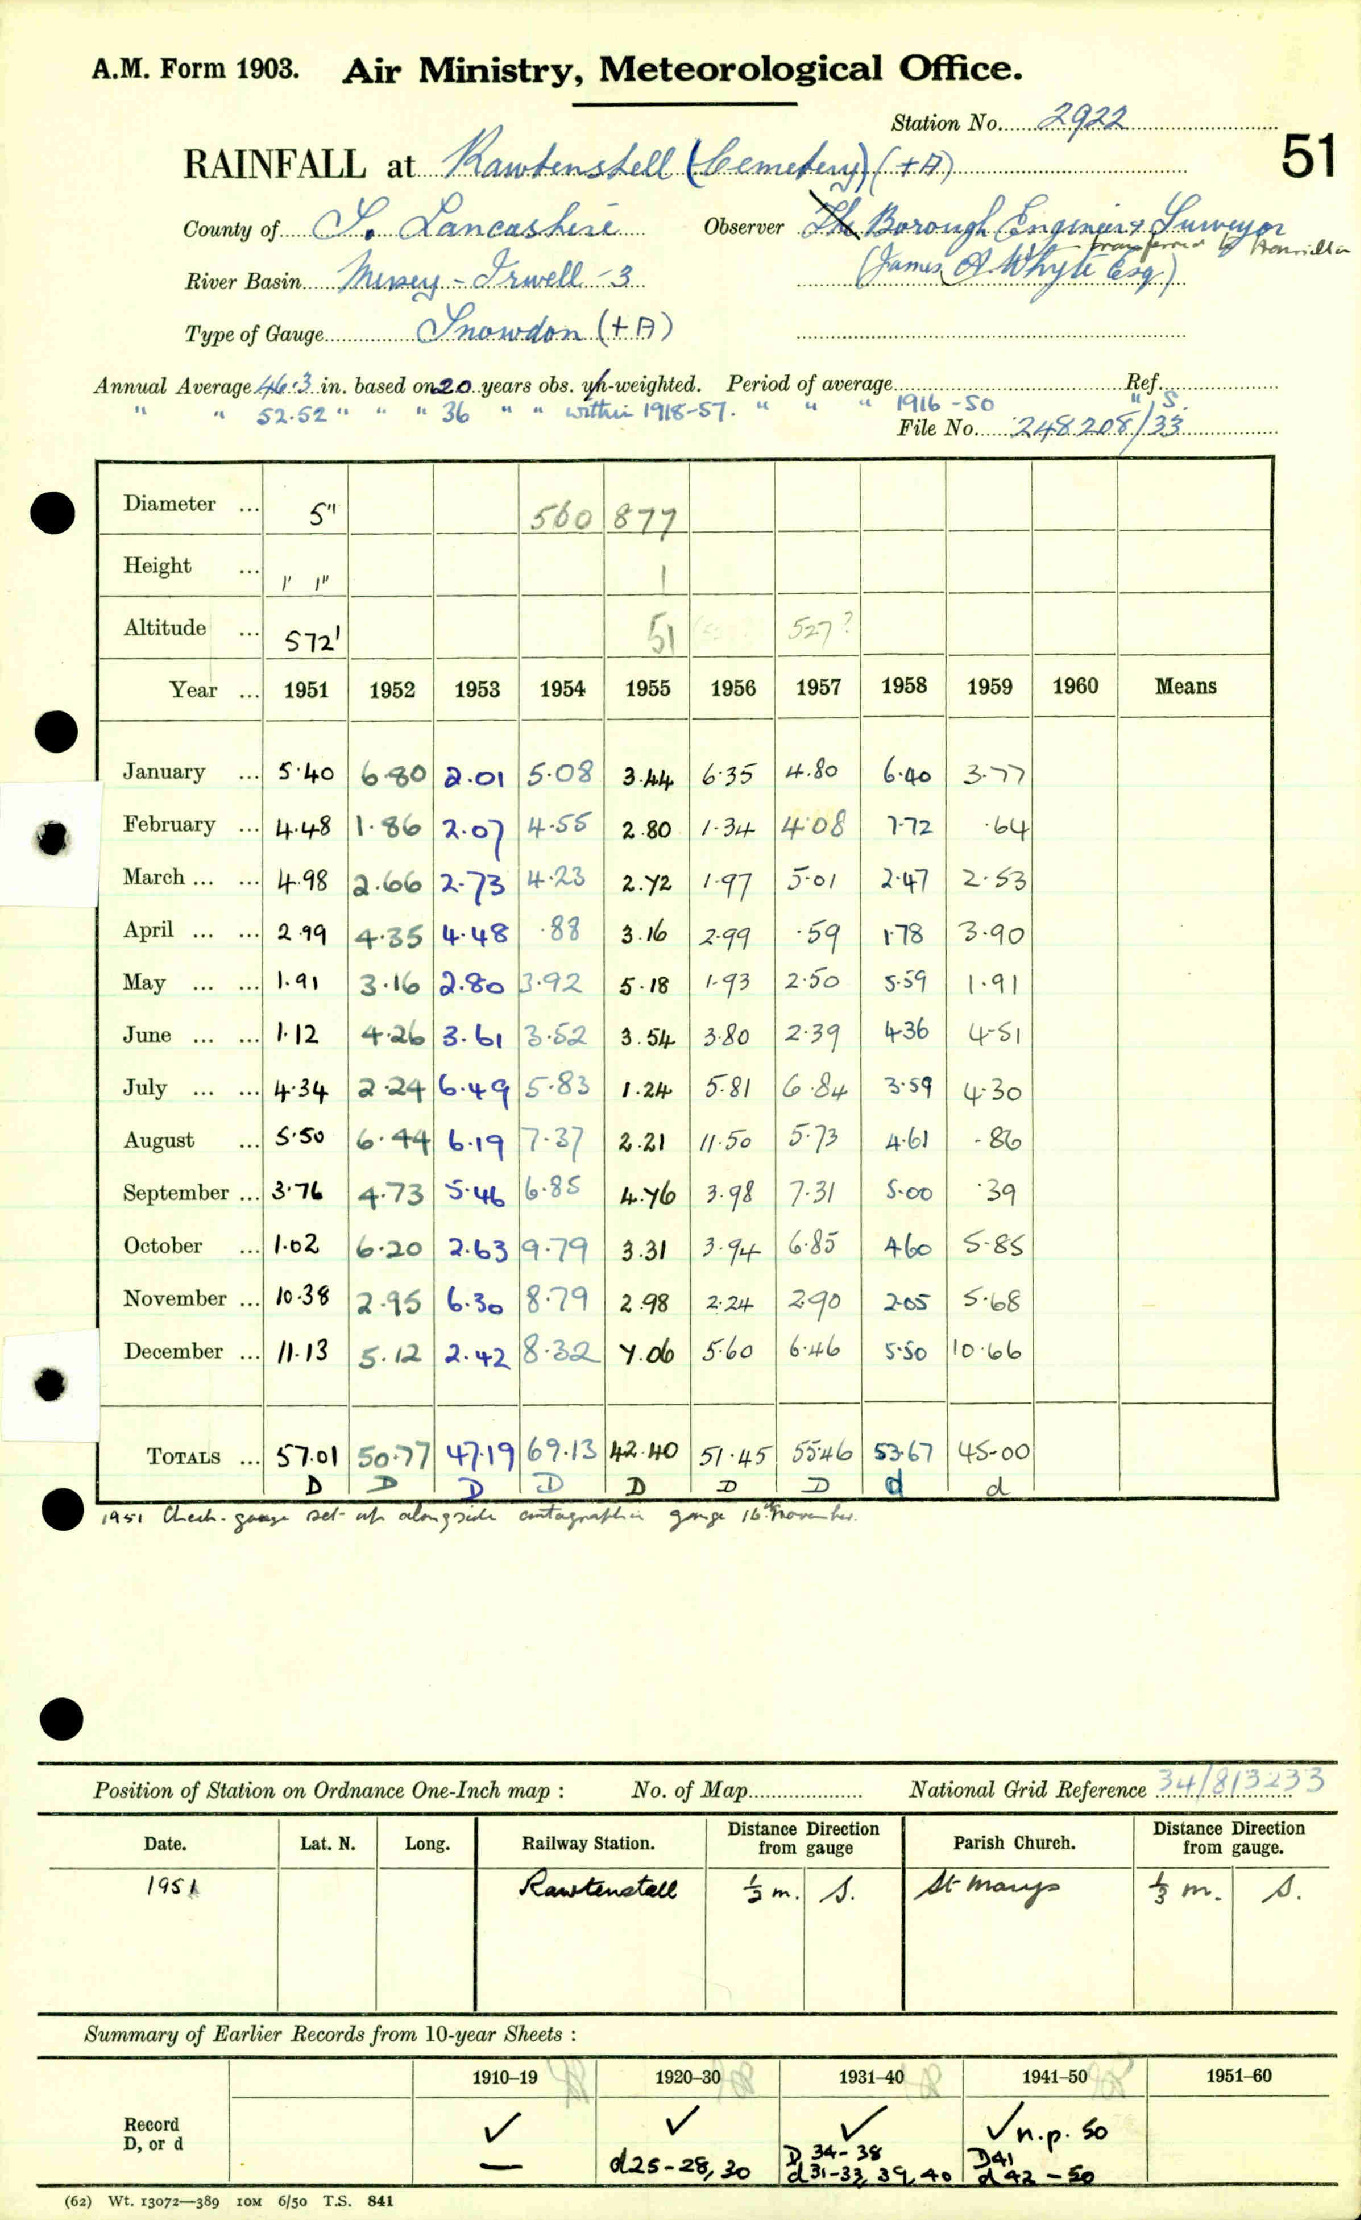 A.M. Form 1903. Air Ministry, Meteorological Office.
Station No. 2922
51
RAINFALL at Rawtenstall (Cemetery) (+A)
County of S. Lancashire Observer The Borough Engineer & Surveyor
transferred to
River Basin Mersey - Irwell - 3 (James A Whyte Esq)
Type of Gauge Snowdon (+A)
Annual Average 46.3 in. based on 20 years obs. un-weighted. Period of average Ref.
" " 52.52 " " " 36 " " within 1918-57. " " " 1916-50 " S.
File No. 248208/33
Diameter ... 5" 560 877
Height ... 1' 1" 1
Altitude ... 572' 51 527?
Year ... 1951 1952 1953 1954 1955 1956 1957 1958 1959 1960 Means
January ... 5.40 6.80 2.01 5.08 3.44 6.35 4.80 6.40 3.77
February ... 4.48 1.86 2.07 4.55 2.80 1.34 4.08 7.72 .64
March ... ... 4.98 2.66 2.73 4.23 2.72 1.97 5.01 2.47 2.53
April ... ... 2.99 4.35 4.48 .88 3.16 2.99 .59 1.78 3.90
May ... ... 1.91 3.16 2.80 3.92 5.18 1.93 2.50 5.59 1.91
June ... ... 1.12 4.26 3.61 3.52 3.54 3.80 2.39 4.36 4.51
July ... ... 4.34 2.24 6.49 5.83 1.24 5.81 6.84 3.59 4.30
August ... 5.50 6.44 6.19 7.37 2.21 11.50 5.73 4.61 .86
September ... 3.76 4.73 5.46 6.85 4.76 3.98 7.31 5.00 .39
October ... 1.02 6.20 2.63 9.79 3.31 3.94 6.85 4.60 5.85
November ... 10.38 2.95 6.30 8.79 2.98 2.24 2.90 2.05 5.68
December ... 11.13 5.12 2.42 8.32 7.06 5.60 6.46 5.50 10.66
TOTALS ... 57.01 50.77 47.19 69.13 42.40 51.45 55.46 53.67 45.00
D D D D D D D d d
1951 Check-gauge set up alongside gauge 16th November.
Position of Station on Ordnance One-Inch map : No. of Map National Grid Reference 34/813233
Date. Lat. N. Long. Railway Station. Distance from Direction gauge Parish Church. Distance from Direction gauge.
1951 Rawtenstall ½ m. S. St Marys ⅓ m. S.
Summary of Earlier Records from 10-year Sheets :
1910-19 1920-30 1931-40 1941-50 1951-60
Record ✓ ✓ ✓ ✓ n.p. 50
D, or d — d25-28, 30 D 34-38 D41
d31-33, 39, 40 d 42-50
(62) Wt. 13072—389 10M 6/50 T.S. 841